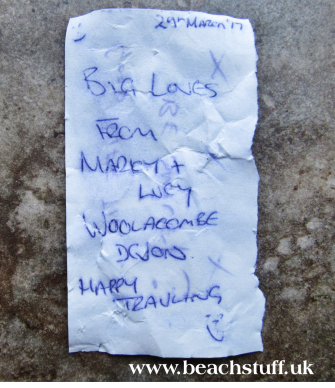 29th MARCH '17
BIG LOVES
FROM
MARKY +
LUCY
WOOLACOMBE
DEVON.
HAPPY
TRAVLING
www.beachstuff.uk